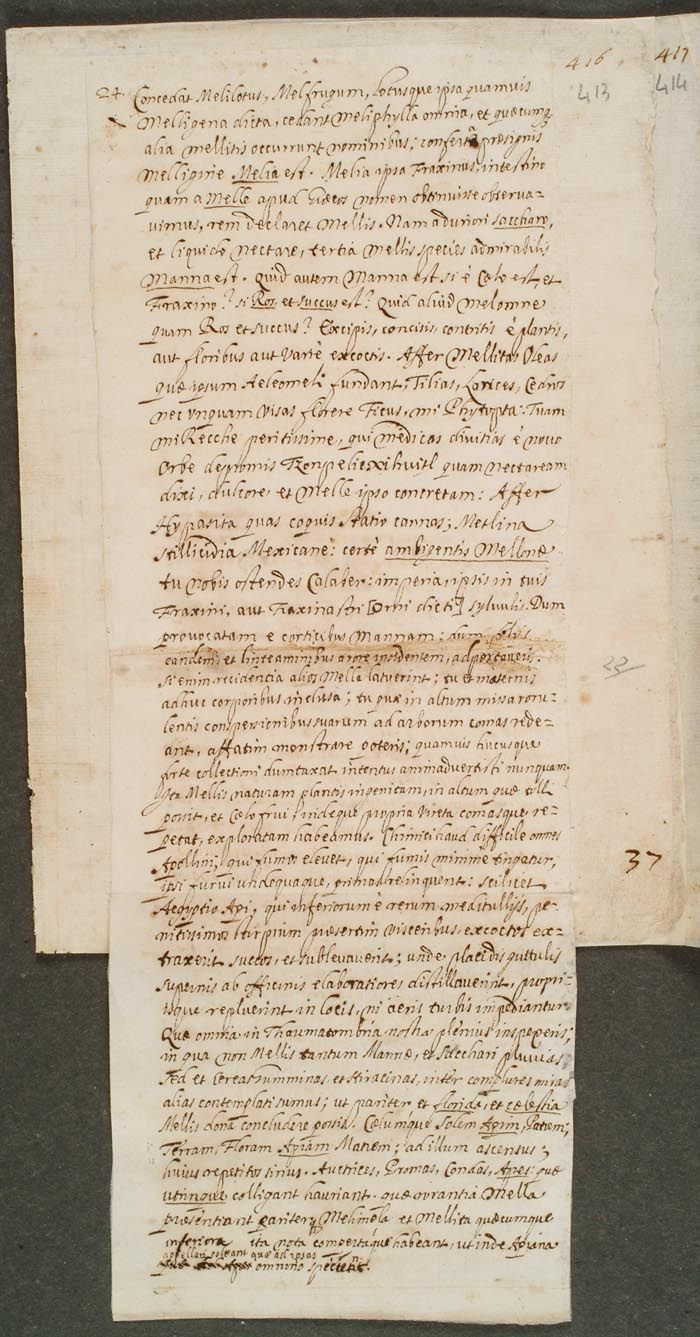 416 417
413 414
24. Concedat Melilotus, Melfrugum, Lotusque ipsa quamuis
Melligena dicta, cedant meliphylla omnia, et quæcumq
alia mellitis occurrunt nominibus; præsignis
melligine Melia est. Melia ipsa Fraxinus, intestino
quam a Melle apud nomen obtinuisse observa-
uimus, rem declaret Mellis. Nam a duriori saccharo,
et liquido nectare, tertia mellis species admirabilis
Manna est. Quid autem Manna est si è Cælo est et
Fraxino? si Ros, et succus est? Quid aliud mel omne
quam Ros et succus? Excipis, concisis, contritis è plantis,
aut floribus aut varie excoctis. Affer Mellitas Oleas
quæ ipsum Aeleomeli fundant, Tilias, Larices, Cedros
nec unquam visas florere Ficus, mi Phytopta: Tuam
mi Recche peritissime, qui medicas divitias è novo
Orbe depromis Tzonpelic xihuitl quam nectaream
dixi, dulcore, et Melle ipso concretam: Affer
Hyppasita quas coquis stativ cannas; Metlina
stillicidia Mexicane: certè ambigentis Mellone
tu nobis ostendes Calaber: imperia, ipsis in tuis
Fraxini, aut Fraxinastri [Orni dicti] sylvulis. Dum
provocatam e corticibus Mannam: dum foliis
eandem, et linteaminibus arore insidentem, adportaveris.
Si enim recidencia alios Mella latuerint; tu et maternis
adhuc corporibus inclusa; tu quæ in altum missa roru-
lentis conspersionibus suarum ad arborum comas rede-
ant, affatim monstrare poteris; quamuis hucusque
forte collectioni dumtaxat intentus animadvertisti nunquam
Ista Mellis naturam plantis ingenitam, in altum quæ
ponit, et Cælo frui indeque propria vireta comasque re-
petat, exploratam habeamus. Chimici haud difficile omnes
Apollini, qui fumos elevet, qui fumis minime tingatur,
ipsi furvi undequaque, primas relinquent: scilicet
Aegyptio Api, qui inferiorum è rerum meditulliis, pe-
nitissimos stirpium præsertim visceribus excoctos ex-
traxerit succos, et sublevaverit; unde placidis guttulis
supernis ab officinis elaboratiores distillaverint, propri-
isque repluerint in locis, ni aeris turbis impediantur
Quæ omnia in Thaumatombria nostra plenius inspexeris;
in qua non Mellis tantum Mannæ, et Sacchari pluvias,
sed et Cereas summinas, et stiracinas, inter complures miras
alias contemplati sumus; ut pariter et florida, et cælestia
Mellis dona concludere possis. Cælumque Solem Apim, Patrem;
Terram, Floram Apiam Matrem; ad illum ascensus,
huius repetitos sinus. Auctrices, Promas, Condas, Apes quæ
utrinque colligant hauriant. quæ orantia Mella
præsentiant pariter, Melimela et Mellita quæcumque
inferiora ita nota compertaque habeant, ut inde Apiana
appellari soleant quæ ad ipsas
omnino spectent.
22
37